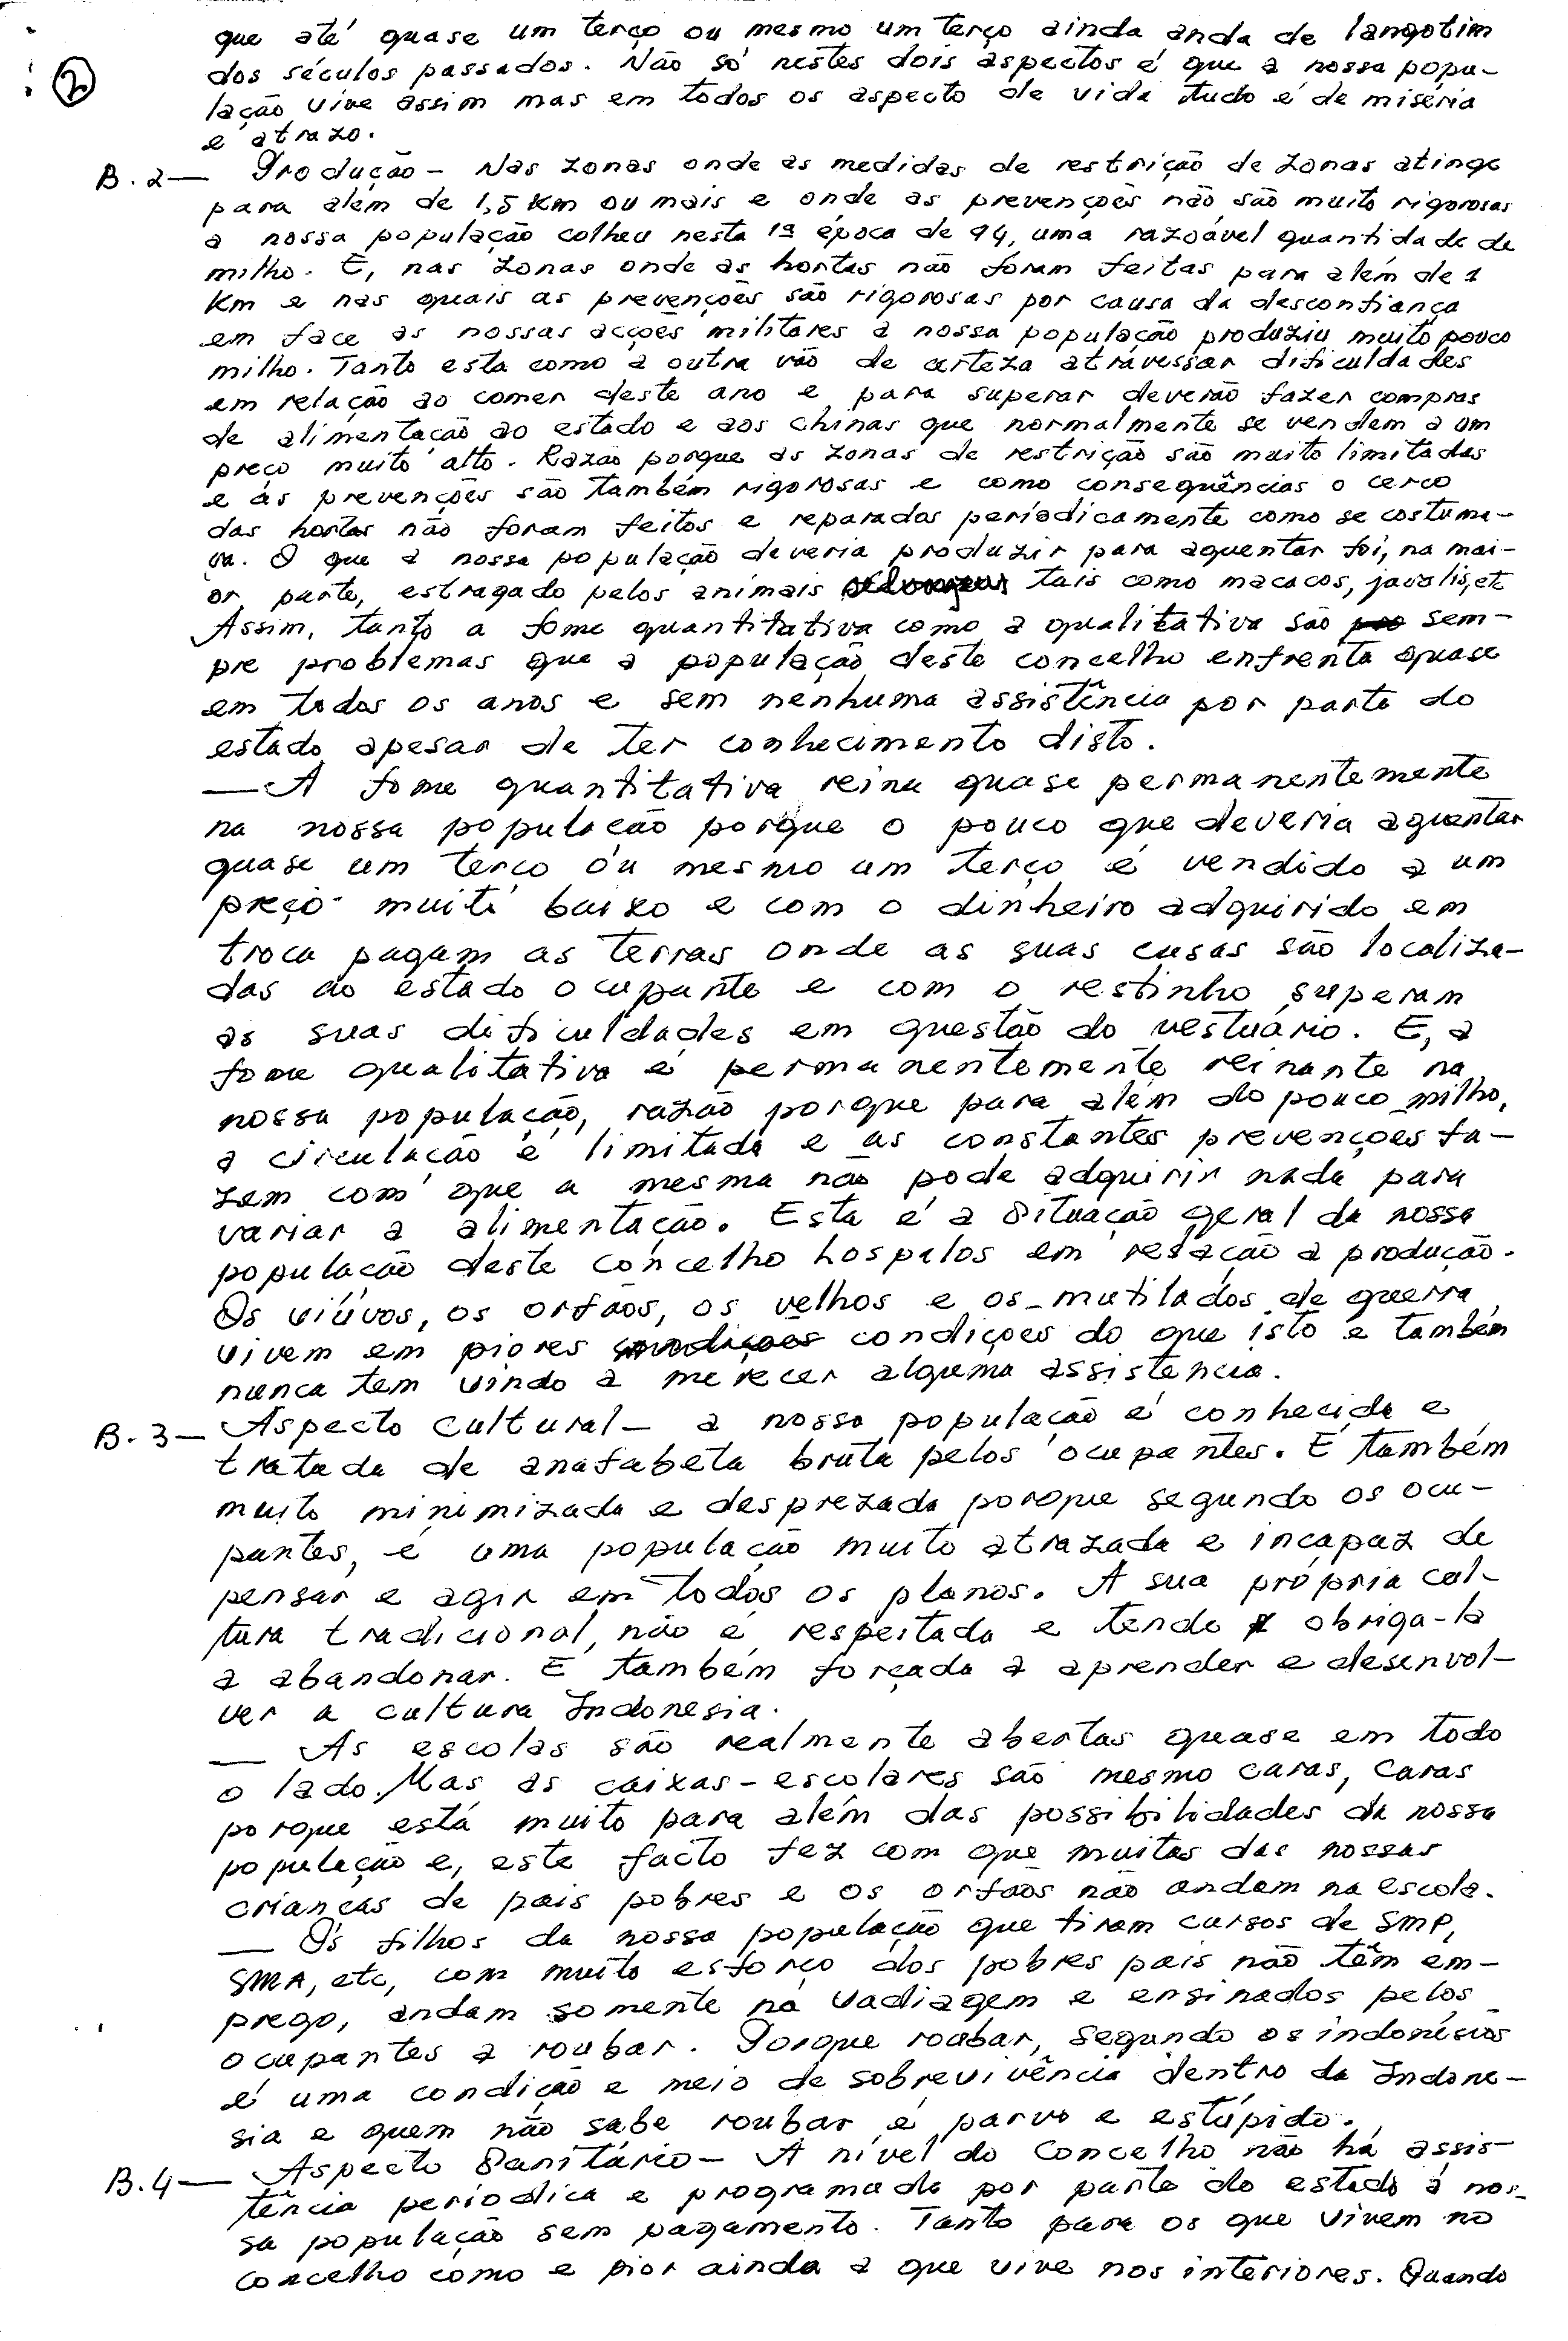 que até quase um terço ou mesmo um terço ainda anda de langotim
②
dos séculos passados. Não só nestes dois aspectos é que a nossa popu-
lação vive assim mas em todos os aspecto de vida tudo é de miséria
e atrazo.
B.2— Produção - Nas zonas onde as medidas de restrição de zonas atinge
para além de 1,5 Km ou mais e onde as prevenções não são muito rigorosas
a nossa população colheu nesta 1ª época de 94, uma razoável quantidade de
milho. E, nas zonas onde as hortas não foram feitas para além de 1
Km e nas quais as prevenções são rigorosas por causa da desconfiança
em face as nossas acções militares a nossa população produziu muito pouco
milho. Tanto esta como a outra vão de certeza atravessar dificuldades
em relação ao comer deste ano e para superar deverão fazer compras
de alimentação ao estado e aos chinas que normalmente se vendem a um
preço muito alto. Razão porque as zonas de restrição são muito limitadas
e as prevenções são também rigorosas e como consequências o cerco
das hortas não foram feitos e reparados periodicamente como se costuma-
va. O que a nossa população deveria produzir para aguentar foi, na mai-
or parte, estragado pelos animais tais como macacos, javalis, etc
Assim, tanto a fome quantitativa como a qualitativa são sem-
pre problemas que a população deste concelho enfrenta quase
em todos os anos e sem nenhuma assistência por parte do
estado apesar de ter conhecimento disto.
— A fome quantitativa reina quase permanentemente
na nossa população porque o pouco que deveria aguentar
quase um terço ou mesmo um terço é vendido a um
preço muito baixo e com o dinheiro adquirido em
troca pagam as terras onde as suas casas são localiza-
das ao estado ocupante e com o restinho superam
as suas dificuldades em questão do vestuário. E, a
fome qualitativa é permanentemente reinante na
nossa população, razão porque para além do pouco milho,
a circulação é limitada e as constantes prevenções fa-
zem com que a mesma não pode adquirir nada para
variar a alimentação. Esta é a situação geral da nossa
população deste concelho hospelos em relação a produção.
Os viúvos, os orfãos, os velhos e os mutilados de guerra
vivem em piores condições do que isto e também
nunca tem vindo a merecer alguma assistencia.
B.3— Aspecto cultural - a nossa população é conhecida e
tratada de anafabeta bruta pelos ocupantes. E também
muito minimizada e desprezada porque segundo os ocu-
pantes, é uma população muito atrazada e incapaz de
pensar e agir em todos os planos. A sua própria cul-
tura tradicional, não é respeitada e tende obriga-la
a abandonar. E também forçada a aprender e desenvol-
ver a cultura Indonesia.
— As escolas são realmente abertas quase em todo
o lado. Mas as caixas-escolares são mesmo caras, caras
porque está muito para além das possibilidades da nossa
população e, este facto fez com que muitas das nossas
crianças de pais pobres e os orfãos não andam na escola.
— Os filhos da nossa população que tiram cursos de SMP,
SMA, etc, com muito esforço dos pobres pais não têm em-
prego, andam somente na vadiagem e ensinados pelos
ocupantes a roubar. Porque roubar, segundo os indonésios
é uma condição e meio de sobrevivência dentro da Indone-
sia e quem não sabe roubar é parvo e estúpido.
B.4— Aspecto Sanitário - A nível do concelho não há assis-
tência periodica e programada por parte do estado á nos-
sa população sem pagamento. Tanto para os que vivem no
concelho como e pior ainda a que vive nos interiores. Quando